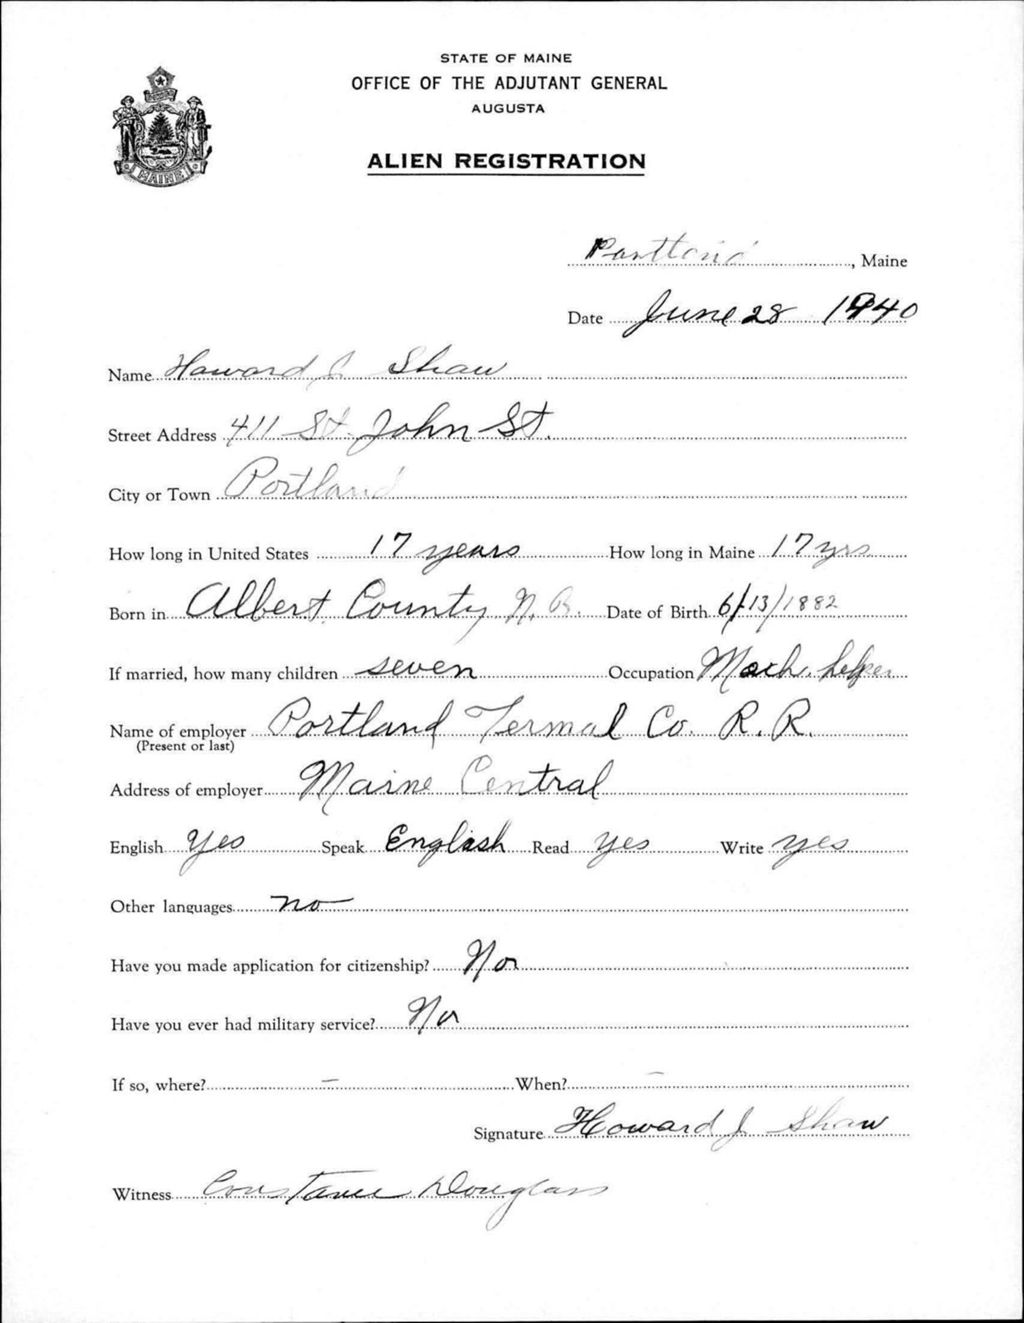 STATE OF MAINE
OFFICE OF THE ADJUTANT GENERAL
AUGUSTA
ALIEN REGISTRATION
MAINE
Portland, Maine
Date June 28 1940
Name Howard J Shaw
Street Address 411 St. John St.
City or Town Portland
How long in United States 17 years How long in Maine 17 yrs
Born in Albert County N.B. Date of Birth 6/13/1882
If married, how many children seven Occupation Mach. helper
Name of employer Portland Termal Co. R.R.
(Present or last)
Address of employer Maine Central
English Yes Speak English Read yes Write yes
Other languages no
Have you made application for citizenship? No
Have you ever had military service? No
If so, where? – When? –
Signature Howard J Shaw
Witness Constance Douglass